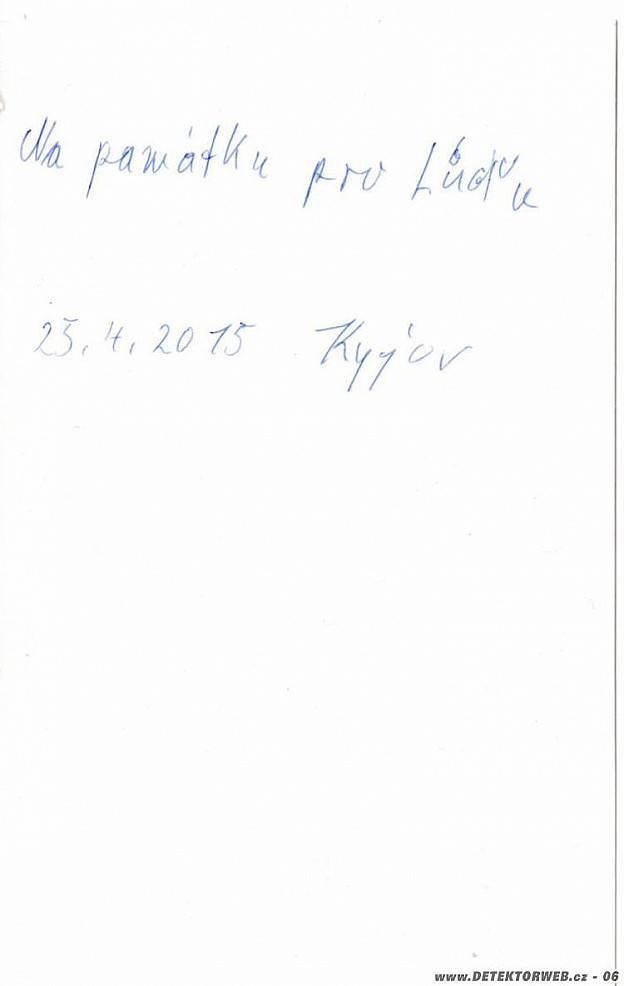 Na památku pro Lůďu
25.4.2015 Kyjov
www.DETEKTORWEB.cz - 06